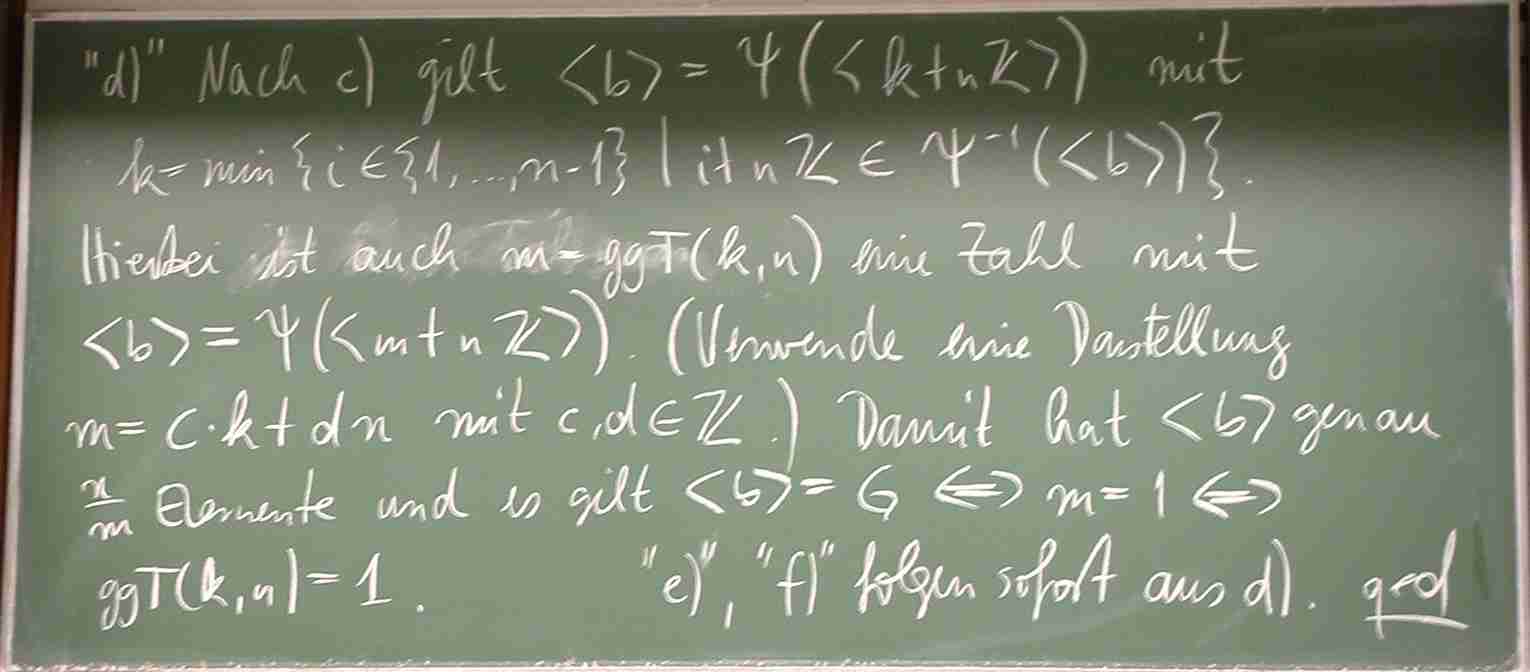 "d)" Nach c) gilt <b> = Ψ(<k+nℤ>) mit
k= min {i∈{1,...,n-1} | i+nℤ ∈ Ψ⁻¹(<b>)}.
Hierbei ist auch m= ggT(k,n) eine Zahl mit
<b> = Ψ(<m+nℤ>). (Verwende eine Darstellung
m= c·k+dn mit c,d∈ℤ.) Damit hat <b> genau
n/m Elemente und es gilt <b> = G ⟺ m=1 ⟺
ggT(k,n)=1. "e)", "f)" folgen sofort aus d). qed